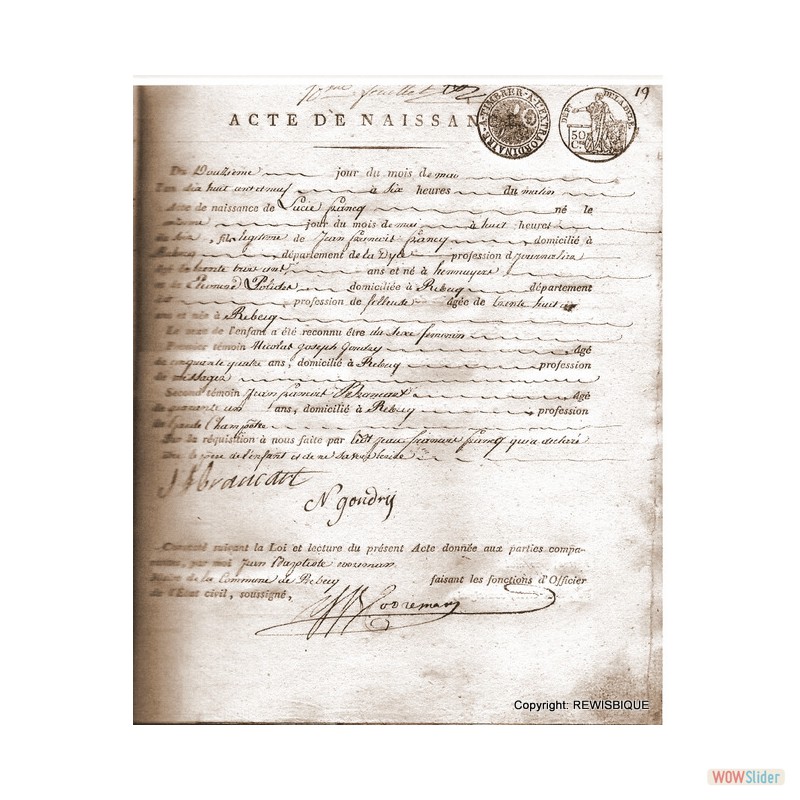 10me feuillet
19
ACTE DE NAISSANCE
A-TIMBRER-A-L'EXTRAORDINAIRE
DEPT DE LA DYLE
50 Cmes
Du Douzième jour du mois de mai
l'an dix huit cent et neuf à six heures du matin
Acte de naissance de Lucie francq né le
jour du mois de mai à huit heures
du soir, fils légitime de Jean francois francq domicilié à
Rebecq département de la Dyle profession d journalier
âgé de trente trois ans et né à hennuyere
et de Polidor domiciliée à Rebecq département
profession de fileuse âgée de trente huit
ans et née à Rebecq
Le sexe de l'enfant a été reconnu être du sexe feminin
Premier témoin Nicolas joseph Goudry âgé
de cinquante quatre ans, domicilié à Rebecq profession
de messager
Second témoin Jean francois âgé
de quarante un ans, domicilié à Rebecq profession
de Garde Champêtre
Sur la réquisition à nous faite par ledit Jean francois francq qui a declaré
être le père de l'enfant et de ne savoir écrire
N goudry
Constaté suivant la Loi et lecture du présent Acte donnée aux parties compa-
rantes, par moi Jean Baptiste vooreman
Maire de la Commune de Rebecq faisant les fonctions d'Officier
de l'Etat civil, soussigné,
Vooreman
Copyright: REWISBIQUE
WOWSlider